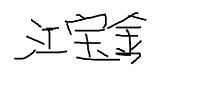 江宝金